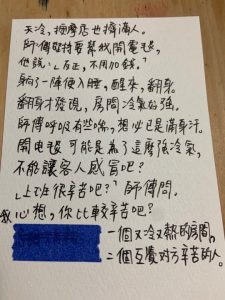 天冷，按摩店也擠滿人。
師傅堅持要幫我開電毯，
他說：「反正，不用加錢。」
躺了一陣便入睡，醒來，翻身。
翻身才發現，房間冷氣的強。
師傅呼吸有些喘，想必已是滿身汗。
開電毯可能是為了這麼強冷氣，
不能讓客人感冒吧？
「上班很辛苦吧？」師傅問。
我心想，你比較辛苦吧？
一個又冷又熱的房間，
二個互覺對方辛苦的人。